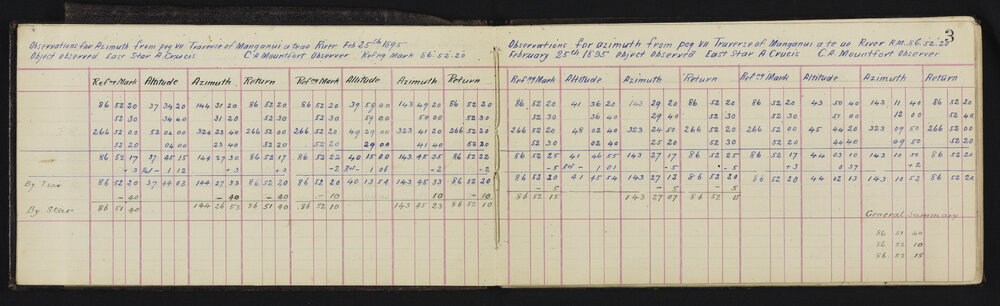 3
Observations for Azimuth from peg VII Traverse of Manganui a te ao River Feb 25th 1895
Object Observed East Star A. Crucis C. A. Mountfort Observer Refng Mark 86. 52. 20
Refng Mark Altitude Azimuth Return Refng Mark Altitude Azimuth Return
86 52 20 37 34 20 144 31 20 86 52 20 86 52 20 39 59 00 143 49 20 86 52 20
52 30 34 40 31 20 52 30 52 30 59 00 50 00 52 30
266 52 00 52 04 00 324 23 40 266 52 00 266 52 20 49 29 00 323 41 20 266 52 20
52 20 04 00 23 40 52 20 52 20 29 00 41 40 52 20
86 52 17 37 45 15 144 27 30 86 52 17 86 52 22 40 15 00 143 45 35 86 52 22
+ 3 - 1 12 + 3 + 3 - 2 - 1 06 - 2 - 2
By Trav 86 52 20 37 44 03 144 27 33 86 52 20 86 52 20 40 13 54 143 45 33 86 52 20
- 40 - 40 - 40 - 10 - 10 - 10
By Star 86 51 40 144 26 53 86 51 40 86 52 10 143 45 23 86 52 10
Observations for azimuth from peg VII Traverse of Manganui a te ao River R.M. 86. 52. 20
February 25th 1895 Object Observed East Star A Crucis C. A. Mountfort Observer
Refng Mark Altitude Azimuth Return Refng Mark Altitude Azimuth Return
86 52 20 41 36 20 143 29 20 86 52 20 86 52 20 43 50 40 143 11 40 86 52 20
52 30 36 40 29 40 52 30 52 30 51 00 12 00 52 40
266 52 20 48 02 40 323 24 50 266 52 20 266 52 00 45 44 20 323 09 50 266 52 00
52 30 02 40 25 20 52 30 52 30 44 40 09 50 52 20
86 52 25 41 46 55 143 27 17 86 52 25 86 52 17 44 03 10 143 10 50 86 52 20
- 5 - 1 01 - 5 - 5 + 3 0 57 + 2
86 52 20 41 45 54 143 27 12 86 52 20 86 52 20 44 02 13 143 10 52 86 52 20
- 5 - 5 - 5
86 52 15 143 27 07 86 52 15
General Summary
86 51 40
86 52 10
86 52 15